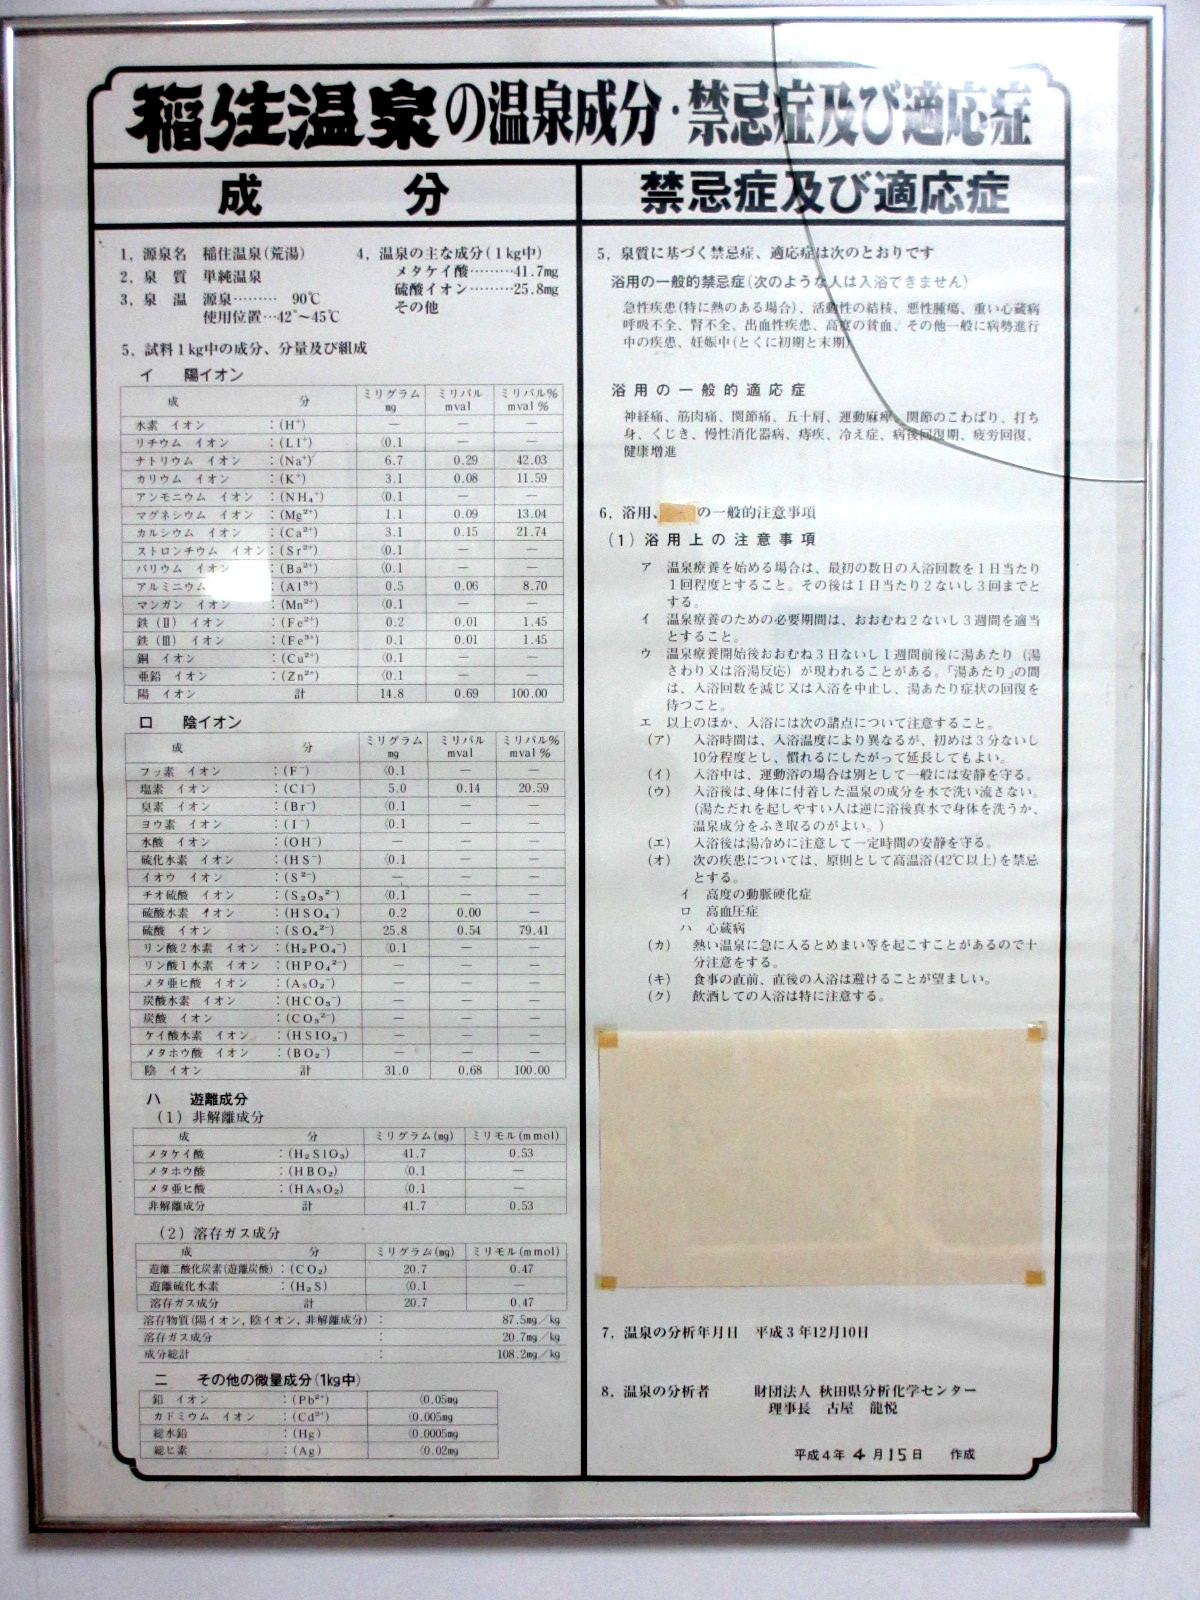 稲住温泉の温泉成分・禁忌症及び適応症
成分
1. 源泉名 稲住温泉(荒湯)
2. 泉質 単純温泉
3. 泉温 源泉……… 90℃
使用位置…42°～45℃
4. 温泉の主な成分(1kg中)
メタケイ酸………41.7mg
硫酸イオン………25.8mg
その他
5. 試料1kg中の成分、分量及び組成
イ 陽イオン
成分 ミリグラム mg ミリバル mval ミリバル% mval %
水素 イオン :(H⁺) — — —
リチウム イオン :(LI⁺) 〈0.1 — —
ナトリウム イオン :(Na⁺) 6.7 0.29 42.03
カリウム イオン :(K⁺) 3.1 0.08 11.59
アンモニウム イオン :(NH₄⁺) 〈0.1 — —
マグネシウム イオン :(Mg²⁺) 1.1 0.09 13.04
カルシウム イオン :(Ca²⁺) 3.1 0.15 21.74
ストロンチウム イオン:(Sr²⁺) 〈0.1 — —
バリウム イオン :(Ba²⁺) 〈0.1 — —
アルミニウム :(Al³⁺) 0.5 0.06 8.70
マンガン イオン :(Mn²⁺) 〈0.1 — —
鉄(II) イオン :(Fe²⁺) 0.2 0.01 1.45
鉄(III) イオン :(Fe³⁺) 0.1 0.01 1.45
銅 イオン :(Cu²⁺) 〈0.1 — —
亜鉛 イオン :(Zn²⁺) 〈0.1 — —
陽 イオン 計 14.8 0.69 100.00
ロ 陰イオン
成分 ミリグラム mg ミリバル mval ミリバル% mval %
フッ素 イオン :(F⁻) 〈0.1 — —
塩素 イオン :(Cl⁻) 5.0 0.14 20.59
臭素 イオン :(Br⁻) 〈0.1 — —
ヨウ素 イオン :(I⁻) 〈0.1 — —
水酸 イオン :(OH⁻) — — —
硫化水素 イオン :(HS⁻) 〈0.1 — —
イオウ イオン :(S²⁻) — — —
チオ硫酸 イオン :(S₂O₃²⁻) 〈0.1 — —
硫酸水素 イオン :(HSO₄⁻) 0.2 0.00 —
硫酸 イオン :(SO₄²⁻) 25.8 0.54 79.41
リン酸2水素 イオン :(H₂PO₄⁻) 〈0.1 — —
リン酸1水素 イオン :(HPO₄²⁻) — — —
メタ亜ヒ酸 イオン :(AsO₂⁻) — — —
炭酸水素 イオン :(HCO₃⁻) — — —
炭酸 イオン :(CO₃²⁻) — — —
ケイ酸水素 イオン :(HSIO₃⁻) — — —
メタホウ酸 イオン :(BO₂⁻) — — —
陰 イオン 計 31.0 0.68 100.00
ハ 遊離成分
(1) 非解離成分
成分 ミリグラム(mg) ミリモル(mmol)
メタケイ酸 :(H₂SIO₃) 41.7 0.53
メタホウ酸 :(HBO₂) 〈0.1 —
メタ亜ヒ酸 :(HAsO₂) 〈0.1 —
非解離成分 計 41.7 0.53
(2) 溶存ガス成分
成分 ミリグラム(mg) ミリモル(mmol)
遊離二酸化炭素(遊離炭酸) :(CO₂) 20.7 0.47
遊離硫化水素 :(H₂S) 〈0.1 —
溶存ガス成分 計 20.7 0.47
溶存物質(陽イオン,陰イオン,非解離成分) : 87.5mg/kg
溶存ガス成分 : 20.7mg/kg
成分総計 : 108.2mg/kg
ニ その他の微量成分(1kg中)
鉛 イオン :(Pb²⁺) 〈0.05mg
カドミウム イオン :(Cd²⁺) 〈0.005mg
総水銀 :(Hg) 〈0.0005mg
総ヒ素 :(Ag) 〈0.02mg
禁忌症及び適応症
5. 泉質に基づく禁忌症、適応症は次のとおりです
浴用の一般的禁忌症(次のような人は入浴できません)
急性疾患(特に熱のある場合)、活動性の結核、悪性腫瘍、重い心臓病
呼吸不全、腎不全、出血性疾患、高度の貧血、その他一般に病勢進行
中の疾患、妊娠中(とくに初期と末期)
浴用の一般的適応症
神経痛、筋肉痛、関節痛、五十肩、運動麻痺、関節のこわばり、打ち
身、くじき、慢性消化器病、痔疾、冷え症、病後回復期、疲労回復、
健康増進
6. 浴用、の一般的注意事項
(1) 浴用上の注意事項
ア 温泉療養を始める場合は、最初の数日の入浴回数を1日当たり
1回程度とすること。その後は1日当たり2ないし3回までと
する。
イ 温泉療養のための必要期間は、おおむね2ないし3週間を適当
とすること。
ウ 温泉療養開始後おおむね3日ないし1週間前後に湯あたり(湯
さわり又は浴湯反応)が現われることがある。「湯あたり」の間
は、入浴回数を減じ又は入浴を中止し、湯あたり症状の回復を
待つこと。
エ 以上のほか、入浴には次の諸点について注意すること。
(ア) 入浴時間は、入浴温度により異なるが、初めは3分ないし
10分程度とし、慣れるにしたがって延長してもよい。
(イ) 入浴中は、運動浴の場合は別として一般には安静を守る。
(ウ) 入浴後は、身体に付着した温泉の成分を水で洗い流さない。
(湯ただれを起しやすい人は逆に浴後真水で身体を洗うか、
温泉成分をふき取るのがよい。)
(エ) 入浴後は湯冷めに注意して一定時間の安静を守る。
(オ) 次の疾患については、原則として高温浴(42℃以上)を禁忌
とする。
イ 高度の動脈硬化症
ロ 高血圧症
ハ 心臓病
(カ) 熱い温泉に急に入るとめまい等を起こすことがあるので十
分注意をする。
(キ) 食事の直前、直後の入浴は避けることが望ましい。
(ク) 飲酒しての入浴は特に注意する。
7. 温泉の分析年月日 平成3年12月10日
8. 温泉の分析者 財団法人 秋田県分析化学センター
理事長 古屋 龍悦
平成4年4月15日 作成